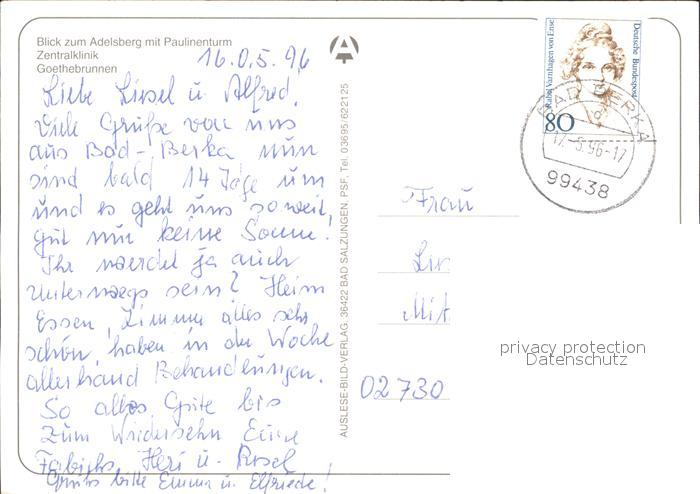 Blick zum Adelsberg mit Paulinenturm
Zentralklinik
Goethebrunnen
16.0.5.96
Liebe Liesel u. Alfred!
Viele Grüße von uns
aus Bad-Berka nun
sind bald 14 Tage um
und es geht uns soweit,
gut nur keine Sonne.
Ihr werdet ja auch
unterwegs sein? Heim
Essen, Zimmer alles sehr
schön, haben in der Woche
allerhand Behandlungen.
So alles Gute bis
zum Wiedersehn Eure
Heri u. Rosel
Grüße bitte Emma u. Elfriede!
AUSLESE-BILD-VERLAG. 36422 BAD SALZUNGEN. PSF, Tel. 03695/622125
Rahel Varnhagen von Ense
Deutsche Bundespost
80
BAD BERKA
17.-5.96-17
99438
Frau
02730
privacy protection
Datenschutz